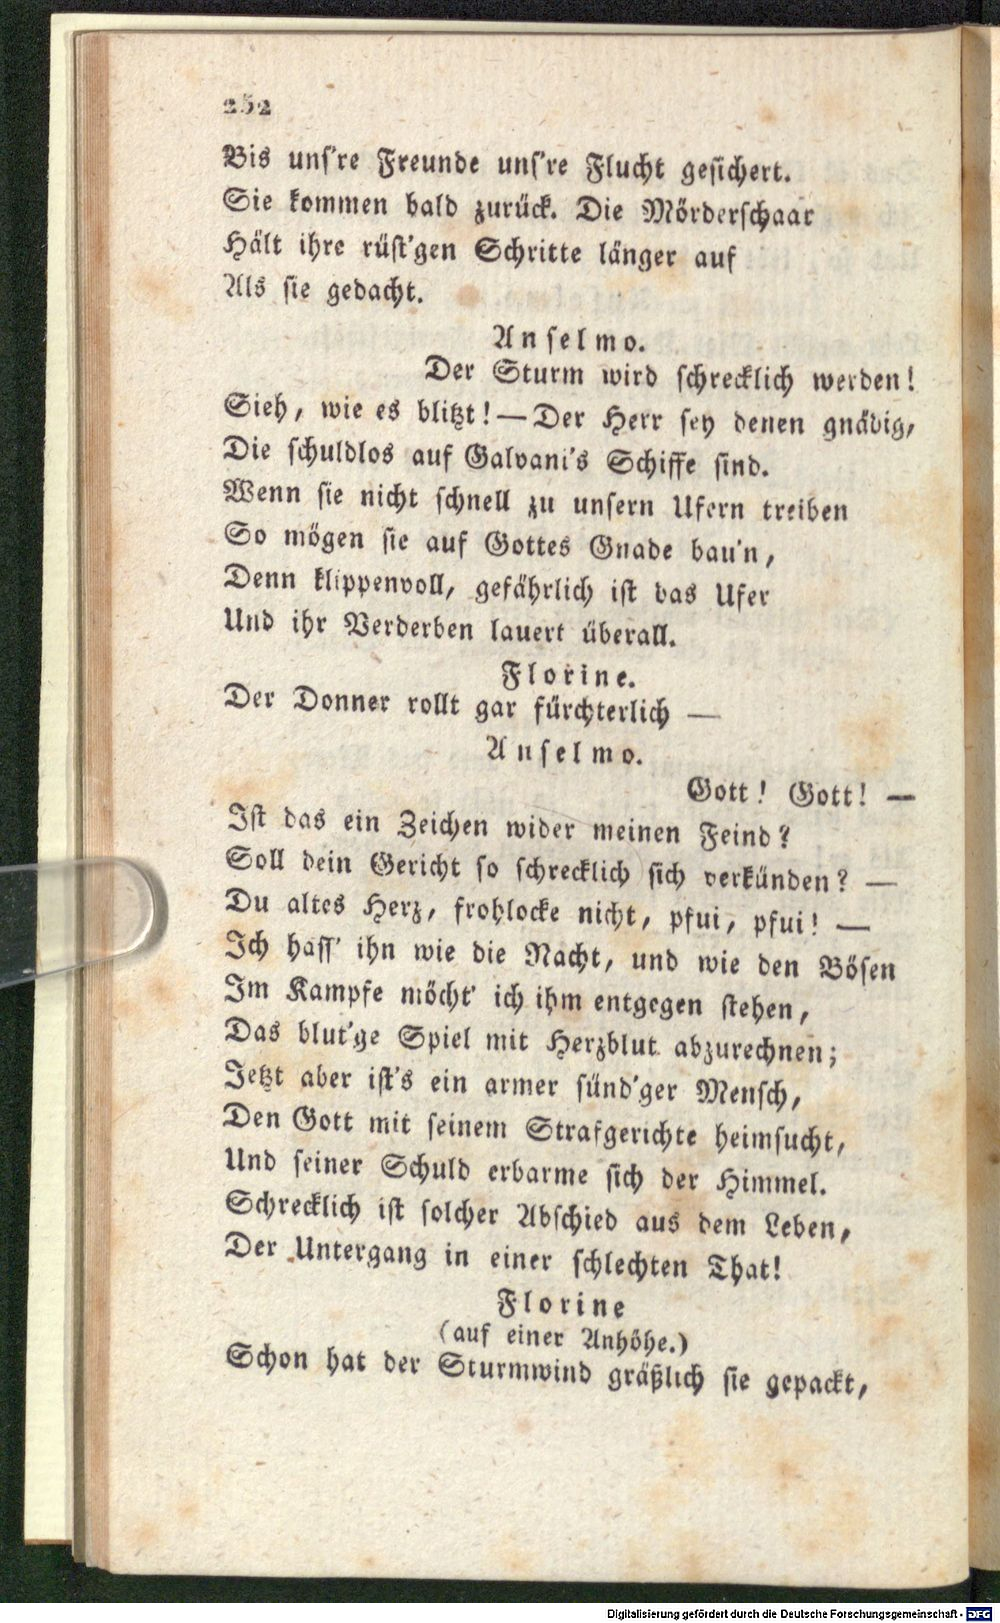 252
Bis uns're Freunde uns're Flucht gesichert.
Sie kommen bald zurück. Die Mörderschaar
Hält ihre rüst'gen Schritte länger auf
Als sie gedacht.
Anselmo.
Der Sturm wird schrecklich werden!
Sieh, wie es blitzt! — Der Herr sey denen gnädig,
Die schuldlos auf Galvani's Schiffe sind.
Wenn sie nicht schnell zu unsern Ufern treiben
So mögen sie auf Gottes Gnade bau'n,
Denn klippenvoll, gefährlich ist das Ufer
Und ihr Verderben lauert überall.
Florine.
Der Donner rollt gar fürchterlich —
Anselmo.
Gott! Gott! —
Ist das ein Zeichen wider meinen Feind?
Soll dein Gericht so schrecklich sich verkünden? —
Du altes Herz, frohlocke nicht, pfui, pfui! —
Ich hass' ihn wie die Nacht, und wie den Bösen
Im Kampfe möcht' ich ihm entgegen stehen,
Das blut'ge Spiel mit Herzblut abzurechnen;
Jetzt aber ist's ein armer sünd'ger Mensch,
Den Gott mit seinem Strafgerichte heimsucht,
Und seiner Schuld erbarme sich der Himmel.
Schrecklich ist solcher Abschied aus dem Leben,
Der Untergang in einer schlechten That!
Florine
(auf einer Anhöhe.)
Schon hat der Sturmwind gräßlich sie gepackt,
Digitalisierung gefördert durch die Deutsche Forschungsgemeinschaft - DFG